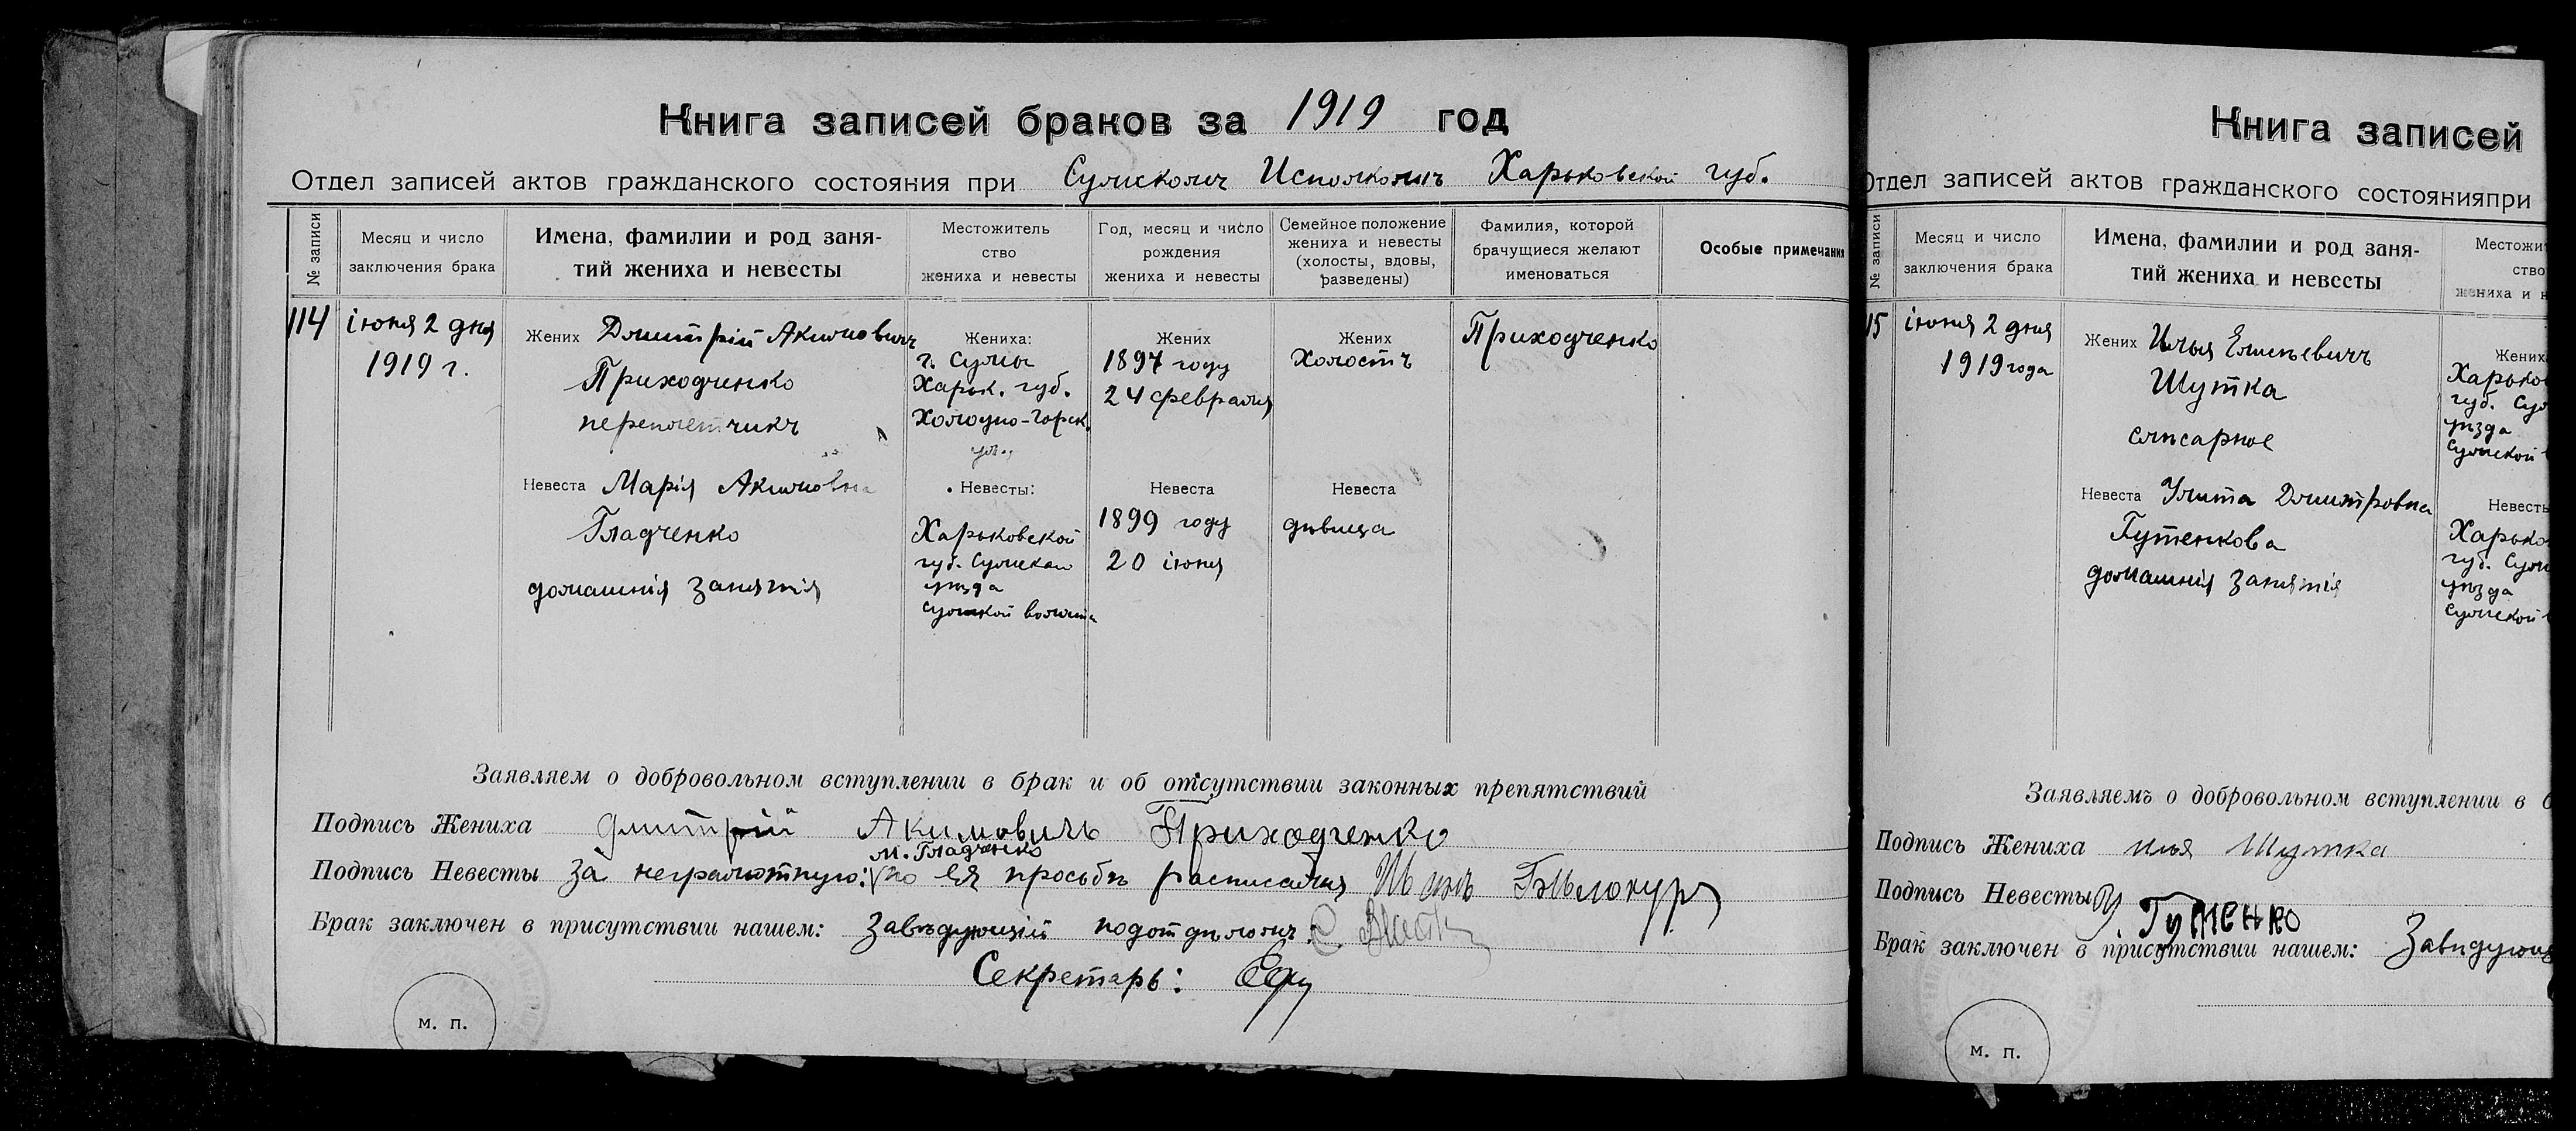 Книга записей браков за 1919 год
Отдел записей актов гражданского состояния при Сумском Исполкомъ Харьковской губ.
№ записи
Месяц и число
заключения брака
Имена, фамилии и род заня-
тий жениха и невесты
Местожитель
ство
жениха и невесты
Год, месяц и число
рождения
жениха и невесты
Семейное положение
жениха и невесты
(холосты, вдовы,
разведены)
Фамилия, которой
брачущиеся желают
именоваться
Особые примечания
114
іюня 2 дня
1919 г.
Жених Дмитрій Акимовичъ
Приходченко
переплетчикъ
Невеста Марія Акимовна
Гладченко
домашнія занятія
Жениха:
г. Сумы
Харьк. губ.
Холодно-Горск.
ул.
Невесты:
Харьковской
губ. Сумскаго
уѣзда
Сумской волости
Жених
1897 году
24 февраля
Невеста
1899 году
20 іюня
Жених
Холостъ
Невеста
дѣвица
Приходченко
Заявляем о добровольном вступлении в брак и об отсутствии законных препятствий
Подпись Жениха Дмитрій Акимовичъ Приходченко
м. Гладченко
Подпись Невесты За неграмотную: по ея просьбѣ расписался Бѣлокур
Брак заключен в присутствии нашем: Завѣдующій подотдѣломъ
Секретарь:
м. п.
Книга записей
Отдел записей актов гражданского состоянияпри
№ записи
Месяц и число
заключения брака
Имена, фамилии и род заня-
тий жениха и невесты
Местожи
ство
жениха и н
15
іюня 2 дня
1919 года
Жених Илья Елисѣевичъ
Шутка
слѣсарное
Невеста Улита Дмитровна
Гутенкова
домашнія занятія
Жених
Харьков
губ. Сум
уѣзда
Сумской
Невесть
Харьков
губ. Сум
уѣзда
Сумской
Заявляемъ о добровольном вступлении в б
Подпись Жениха иля Шутка
Подпись Невесты У. Гутенко
Брак заключен в присутствии нашем: Завидующ
м. п.